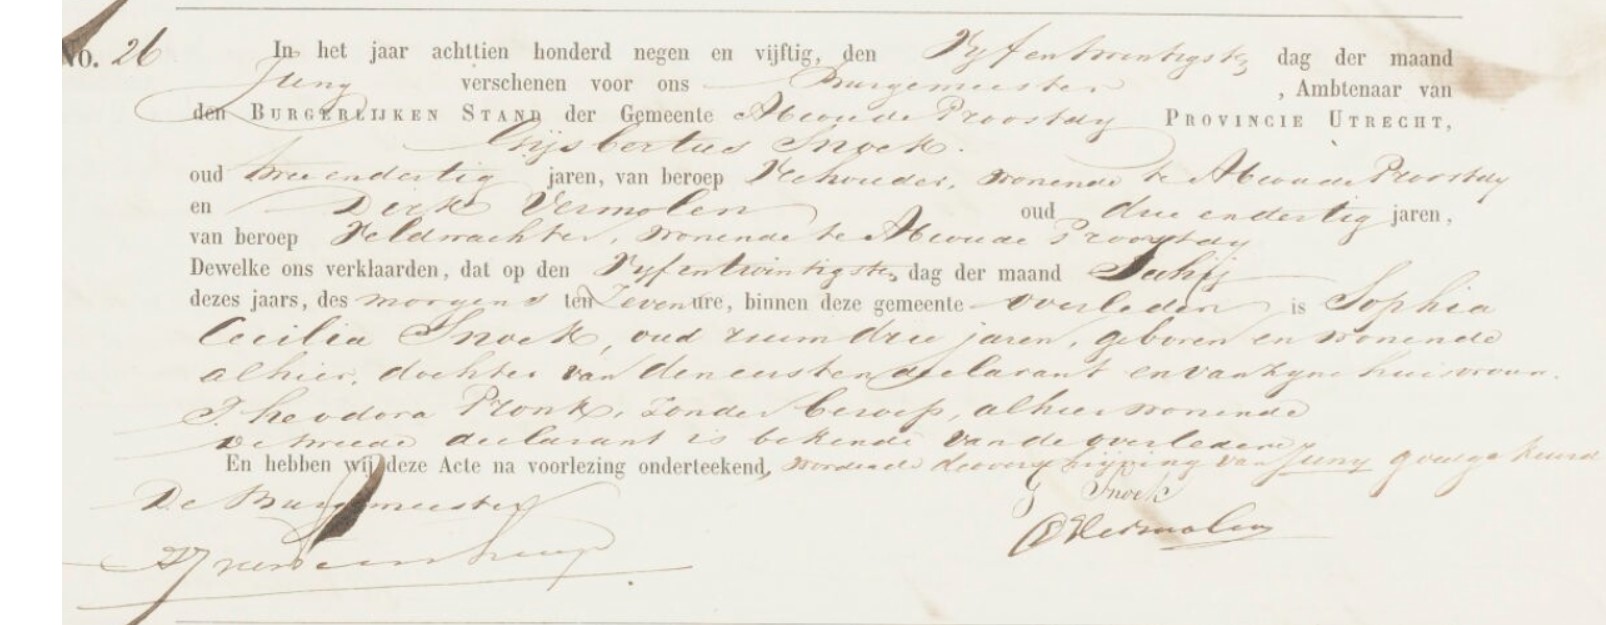 No. 26 In het jaar achttien honderd negen en vijftig, den Vyfentwintigste dag der maand
Juny verschenen voor ons Burgemeester, Ambtenaar van
den BURGERLIJKEN STAND der Gemeente Abcoude Proostdy PROVINCIE UTRECHT,
Gijsbertus Snoek.
oud twee endertig jaren, van beroep Veehouder, wonende te Abcoude Proostdy
en Dirk Vermolen oud drie endertig jaren,
van beroep Veldwachter, wonende te Abcoude Proostdy
Dewelke ons verklaarden, dat op den Vyfentwintigste dag der maand
dezes jaars, des morgens ten Zeven ure, binnen deze gemeente overleden is Sophia
Cecilia Snoek, oud ruim drie jaren, geboren en wonende
alhier, dochter van den eersten declarant en van Zyne huisvrouw.
Theodora Pronk, zonder beroep, alhier wonende
De tweede declarant is bekende van de overledene
En hebben wij deze Acte na voorlezing onderteekend, wordende de overschrijving van Juny goedgekeurd
De Burgemeester G Snoek
D Vermolen